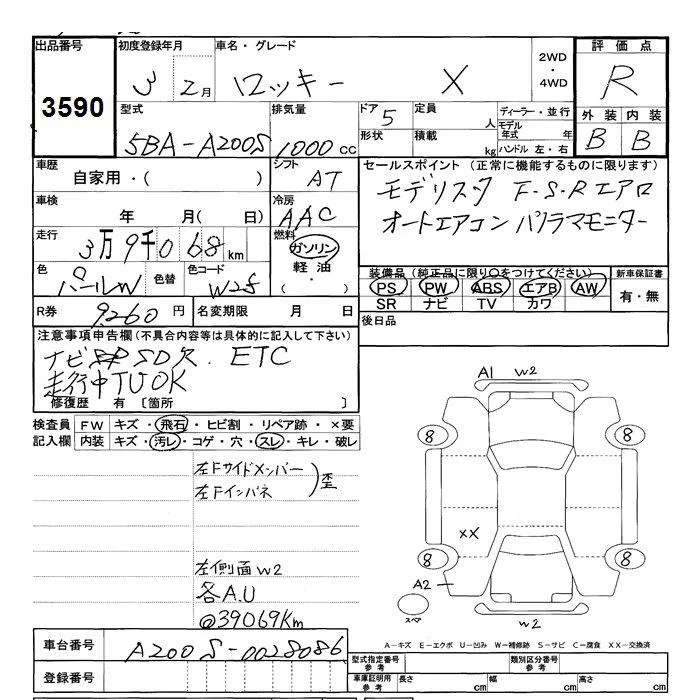 出品番号 初度登録年月 車名・グレード 2WD・4WD 評価点
3590 3 2月 ロッキー X R
型式 排気量 ドア 5 定員 人 ディーラー・並行 外装 内装
モデル年式 年
5BA-A200S 1000cc 形状 積載 kg ハンドル 左・右 B B
車歴 シフト セールスポイント (正常に機能するものに限ります)
自家用・( ) AT モデリスタ F.S.Rエアロ
車検 冷房 オートエアコン パノラマモニター
年 月( 日) AAC
走行 燃料
3万9千068km ガソリン
軽油
・( )
色 色替 色コード 装備品(純正品に限り○をつけてください) 新車保証書
パールW W25 PS PW ABS エアB AW 有・無
SR ナビ TV カワ
R券 9260円 名変期限 月 日 後日品
注意事項申告欄(不具合内容等は具体的に記入して下さい)
ナビ SD欠. ETC
走行中TVOK
修復歴 有〔箇所 〕
検査員 FW キズ・飛石・ヒビ割・リペア跡・×要
記入欄 内装 キズ・汚レ・コゲ・穴・スレ・キレ・破レ
左Fサイドメンバー
左Fインパネ
)歪
左側面W2
各A.U
@39069Km
A1 W2
8 8
XX
8 8
A2
スペア
W2
A-キズ E-エクボ U-凹み W-補修跡 S-サビ C-腐食 XX-交換済
車台番号 A200S-0028086
型式指定番号 参考 類別区分番号 参考
登録番号 車庫証明用 参考 長さ cm 幅 cm 高さ cm